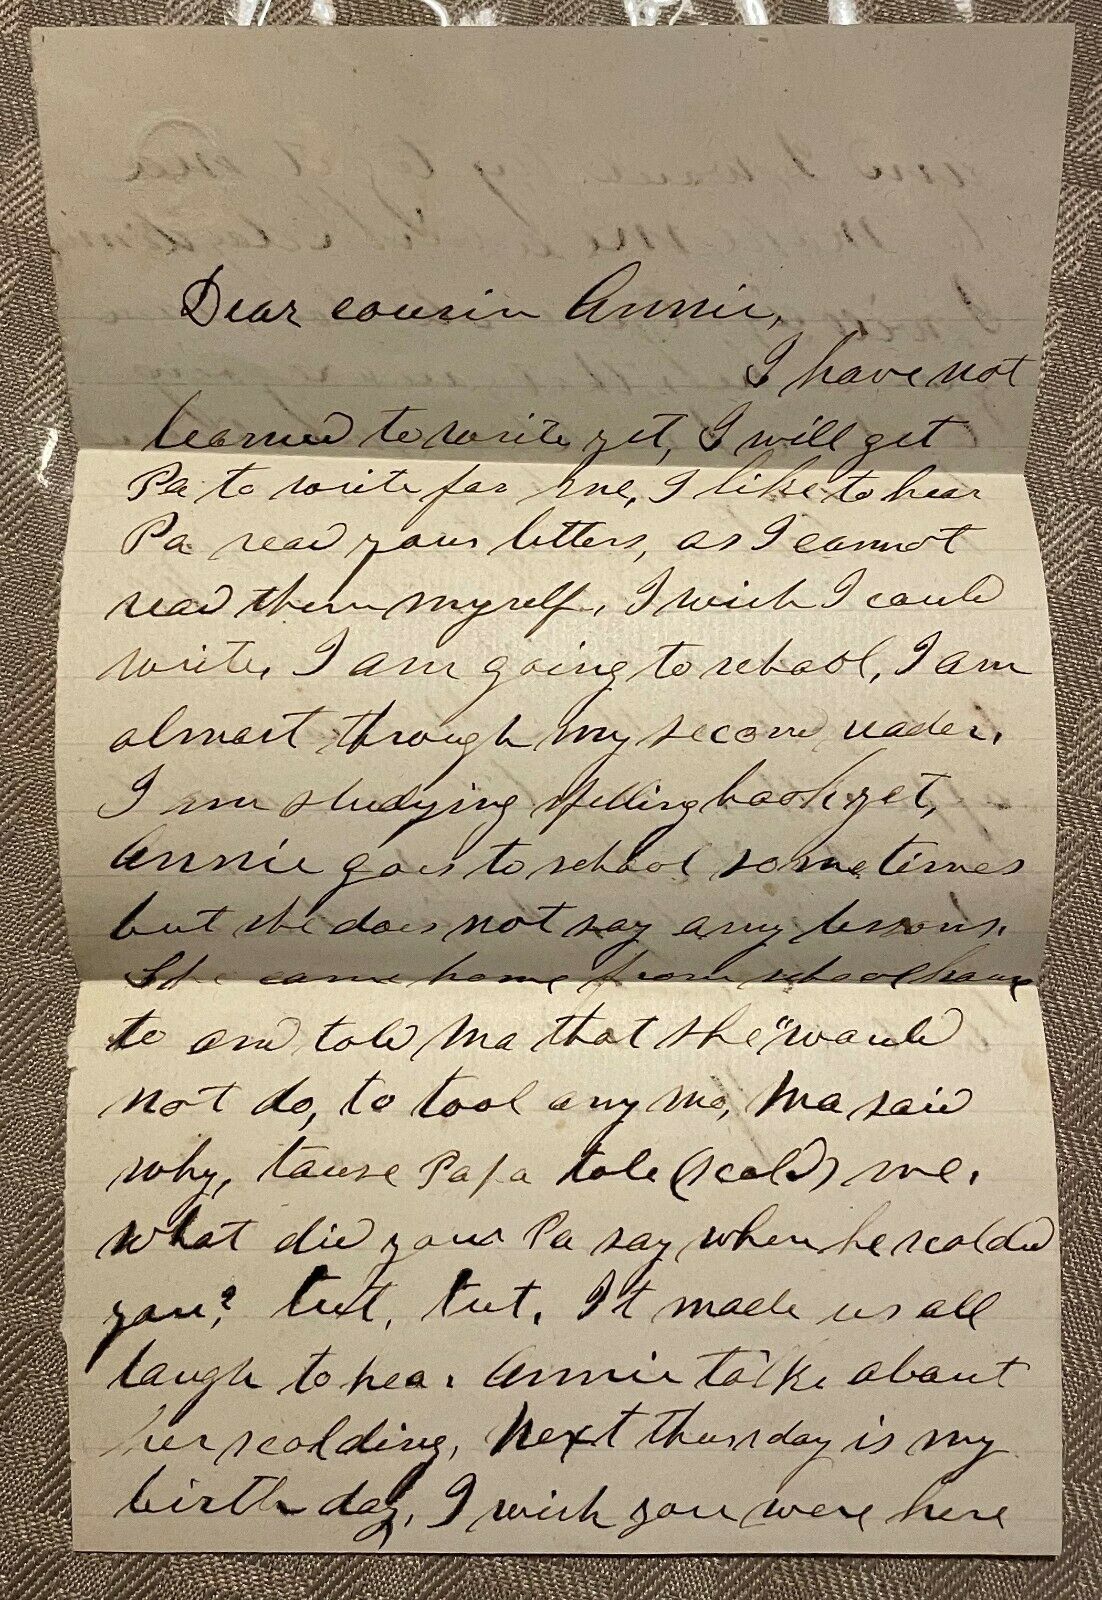 Dear cousin Annie,
I have not
learned to write yet, I will get
Pa to write for me, I like to hear
Pa read your letters, as I cannot
read them myself, I wish I could
write, I am going to school, I am
almost through my second reader,
I am studying spelling book yet,
Annie goes to school sometimes
but she does not say any lessons.
She came home from school
to and told Ma that she "would
not do, to tool any mo, Ma said
why, tause Papa tole (scold) me.
what did your Pa say when he scolded
you? tut, tut. It made us all
laugh to hear Annie talke about
her scolding, Next thursday is my
birth day, I wish you were here